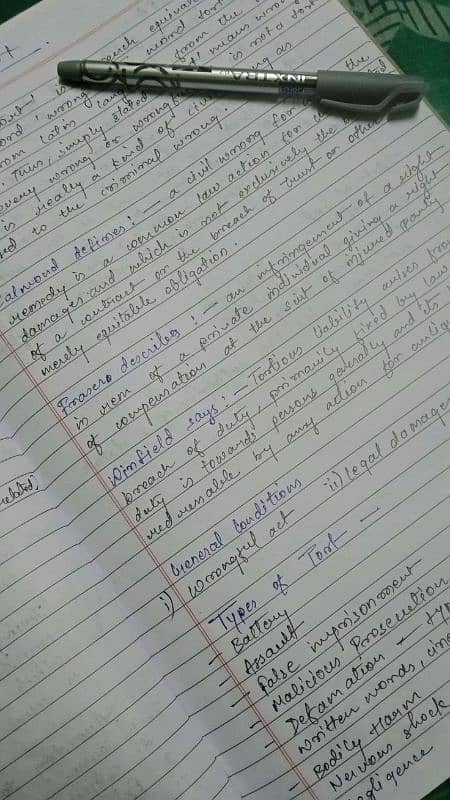 equival
word tort
word wrong
from latin lang
from the
. Thus, simply stated means wrong
every wrong or wrongful is not a tort
is really a kind of civil
ed to the criminal wrong.
almond defines :- a civil wrong for the
remedy is a common law action for
damages and which is not exclusively the b
of a contract or the breach of trust or other
merely equitable obligation.
describes :- an infringement of a right
is rem of a private individual giving a right
of compensation at the suit of injured party
Winfield says :- Tortious liability arises from
breach of duty, primarily fixed by law
duty is towards persons generally and its
redressable by any action for unliq
General Conditions
i) Wrongful act ii) legal damage
Types of Tort -
- Battery
- Assault
- False imprisonment
- Malicious Prosecution
- Defamation - typ
written words,
- Bodily Harm
Nervous shock
egligence
related.
LINXTRA